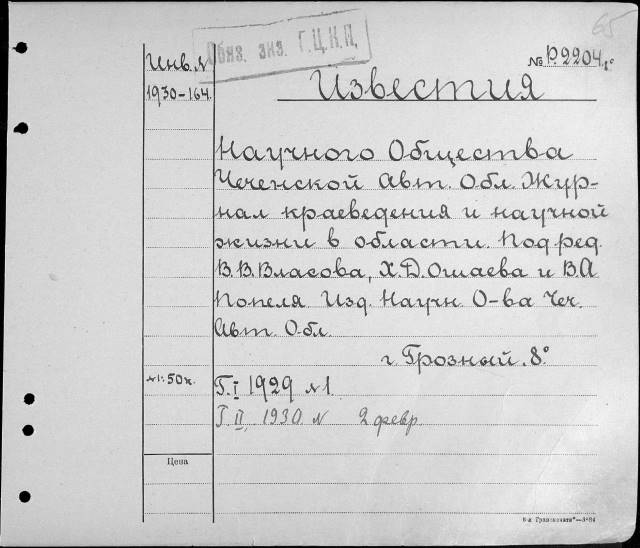 65
Обяз. экз. Г.Ц.К.П.
№ Р2204 1°
Инв. №
1930-164.
Известия
Научного Общества
Чеченской Авт. Обл. Жур-
нал краеведения и научной
жизни в области. Под ред.
В.В.Власова, Х.Д.Ошаева и В.А
Попеля Изд. Научн О-ва Чеч.
Авт. Обл.
г. Грозный. 8°
№1:50к.
Г.I 1929 №1
Г.II, 1930. № 2 февр.
Цена